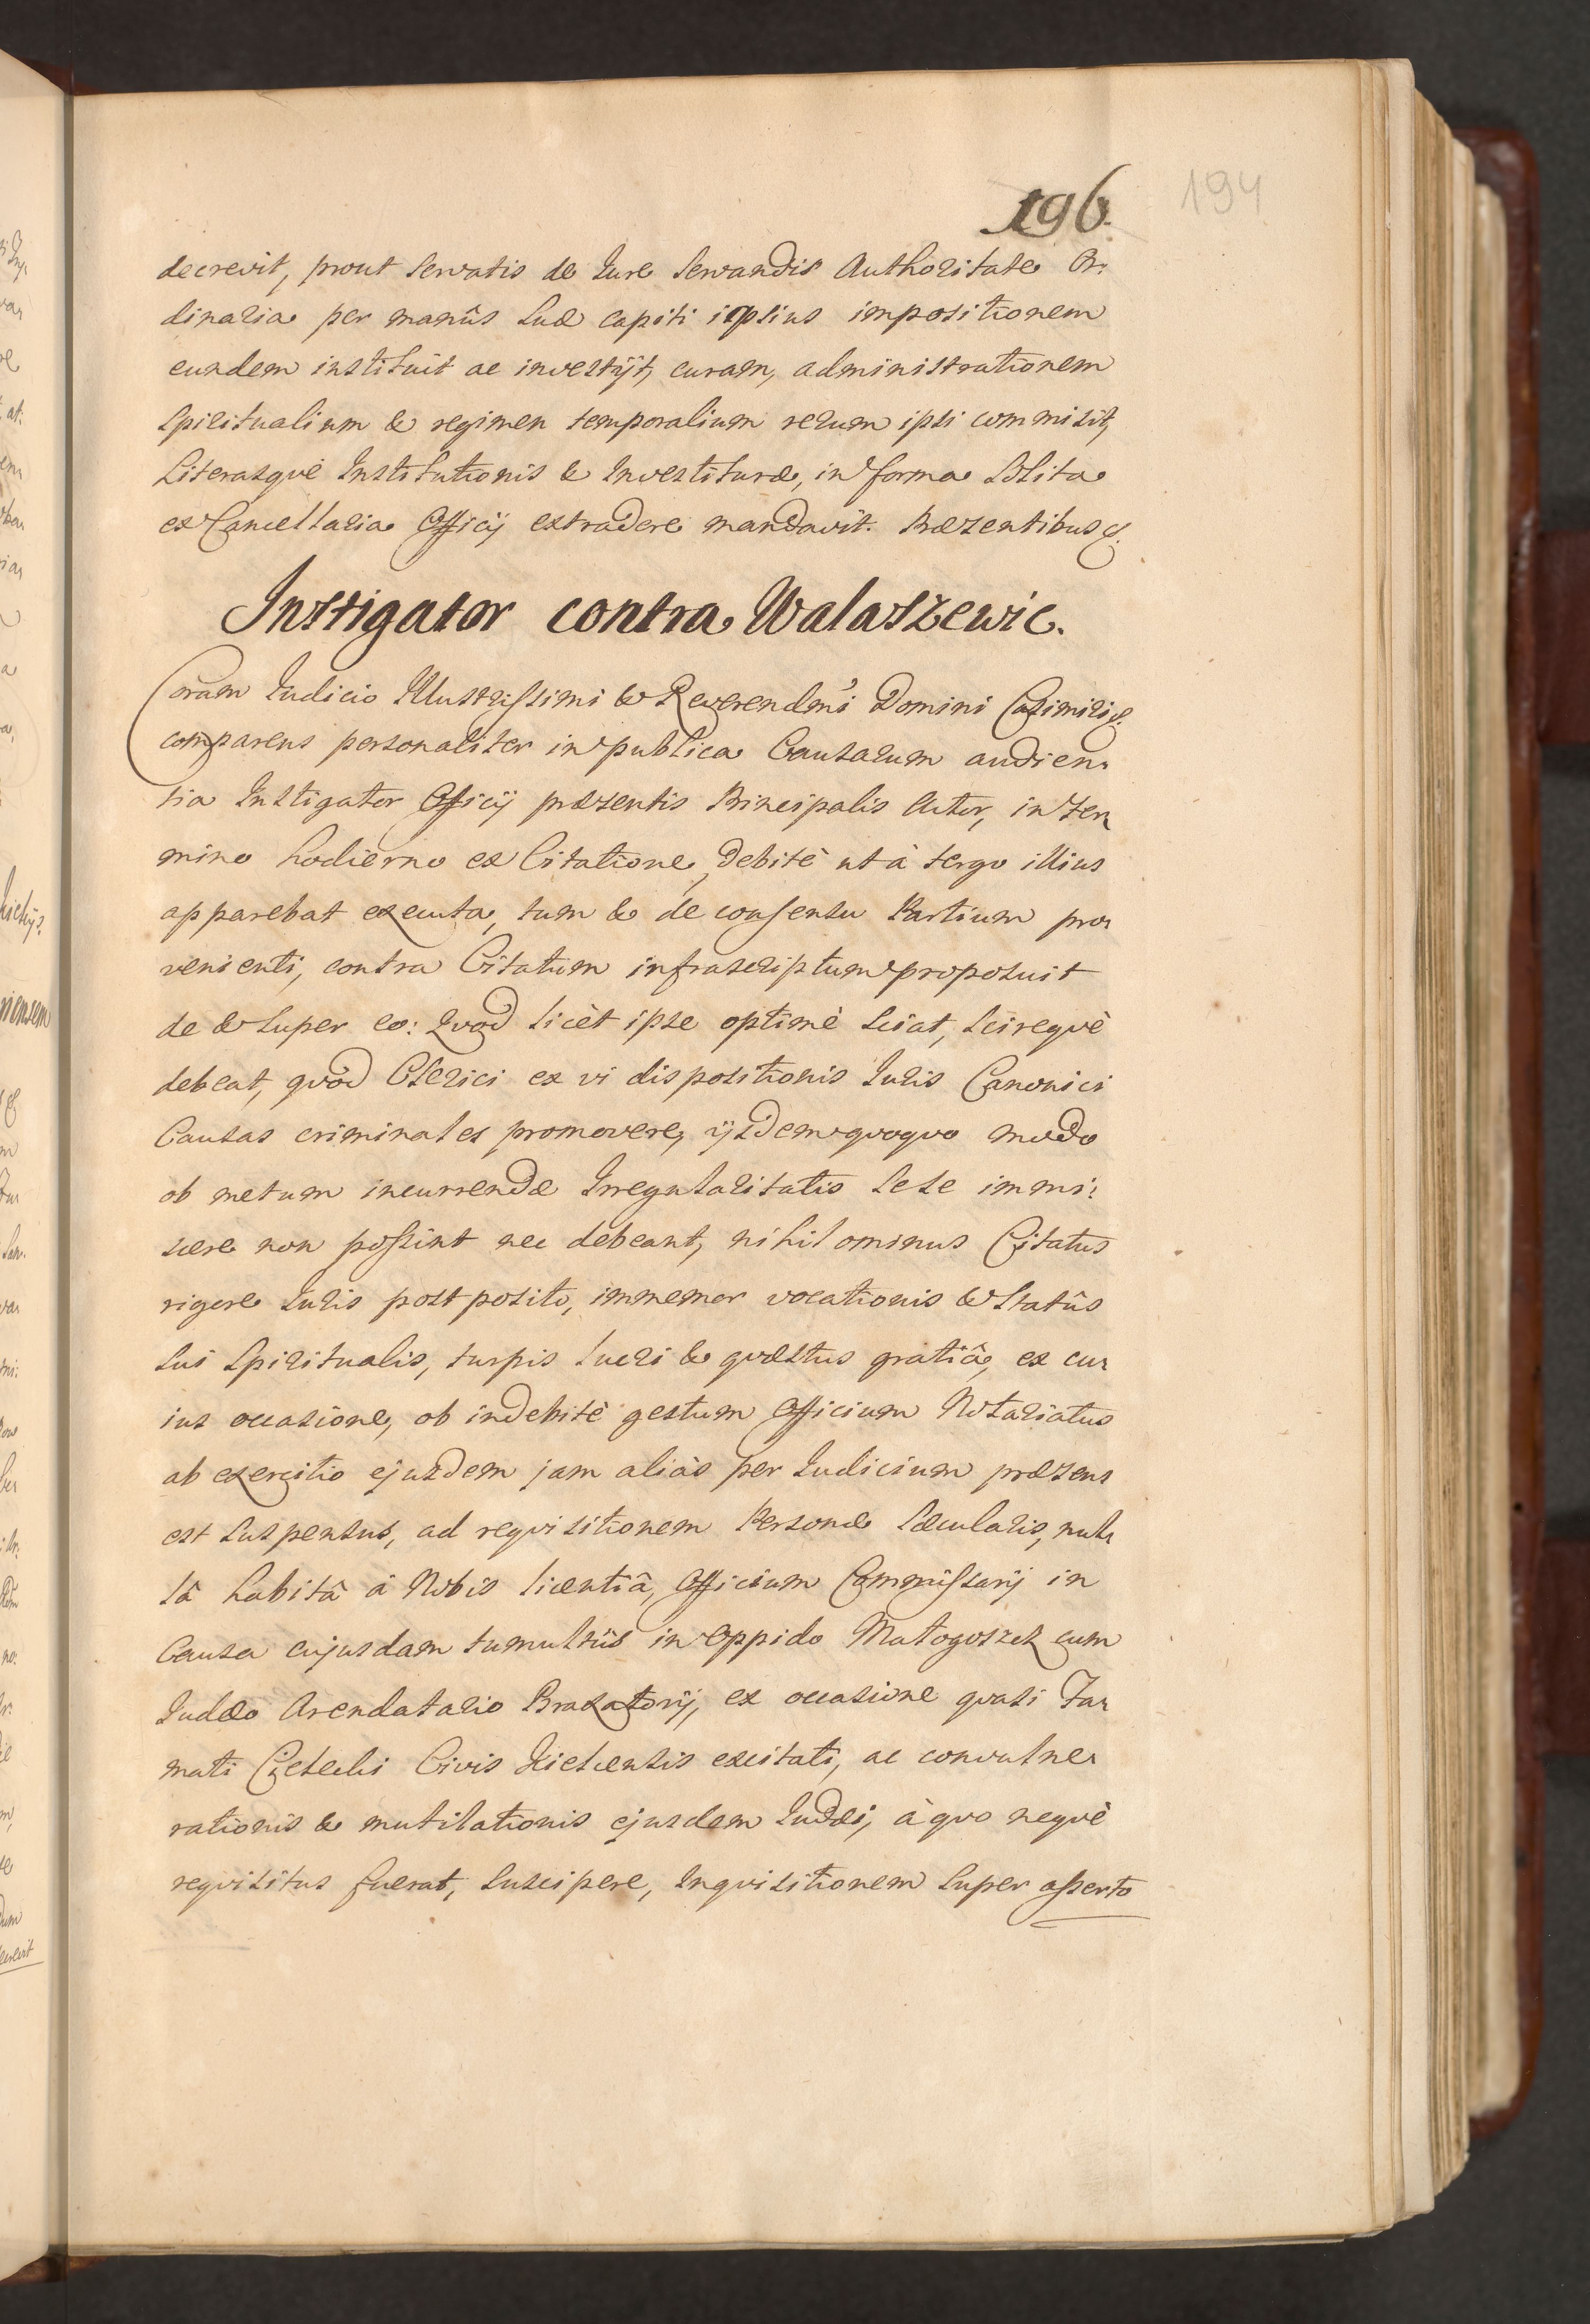 196.
194
decrevit, prout servatis de Iure servandis Authoritate Or:
dinaria per manûs suæ capiti ipsius impositionem
eundem instituit ac investijt, curam, administrationem
spiritualium & regimen temporalium rerum ipsi commisit,
Literasquè Institutionis & Investituræ, in forma solita
ex Cancellaria Officij extradere mandavit. Præsentibus &.
Instigator contra Walaszewic.
Coram Iudicio Illustrissimi & Reverendmi Domini Casimiri &.
comparens personaliter in publica Causarum audien:
tia Instigator Officij præsentis Principalis Actor, in Ter:
mino hodierno ex Citatione, debitè ut à tergo illius
apparebat executa, tum & de consensu Partium pro:
venienti, contra Citatum infrascriptum proposuit
de & super eo: Quod licèt ipse optimè sciat, scirequè
debeat, quòd Clerici ex vi dispositionis Iuris Canonici
Causas criminales promovere, ijsdem quoquo modo
ob metum incurrendæ Irregularitatis sese immi:
scere non possint nec debeant, nihilominus Citatus
rigore Iuris postposito, immemor vocationis & statûs
sui spiritualis, turpis lucri & quæstus gratiâ, ex cu:
ius occasione, ob indebitè gestum Officium Notariatus
ab exercitio ejusdem jam aliàs per Iudicium præsens
est suspensus, ad requisitionem Personæ sæcularis, nul:
lâ habitâ à Nobis licentiâ, Officium Commissarij in
Causa cujusdam tumultûs in Oppido Małogoszcz cum
Iudæo Arendatario Braxatorij, ex occasione quasi Far:
mati Civis Kielcensis excitati, ac convulne:
rationis & mutilationis ejusdem Iudæi, à quo nequè
requisitus fuerat, suscipere, Inquisitionem super asserto